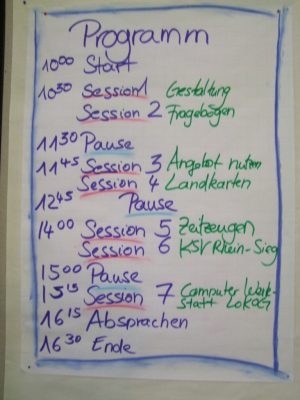 Programm
10⁰⁰ Start
10³⁰ Session 1 Gestaltung
Session 2 Fragebögen
11³⁰ Pause
11⁴⁵ Session 3 Angebot nutzen
Session 4 Landkarten
12⁴⁵ Pause
14⁰⁰ Session 5 Zeitzeugen
Session 6 KSV Rhein-Sieg
15⁰⁰ Pause
15¹⁵ Session 7 Computer Werk-
statt
16¹⁵ Absprachen
16³⁰ Ende